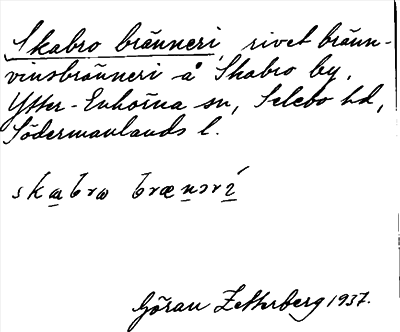 Skabro bränneri, rivet bränn-
vinsbränneri å Skabro by,
Ytter-Enhörna sn, Selebo hd,
Södermanlands l.
skabro brænəri
Göran Zetterberg 1937.